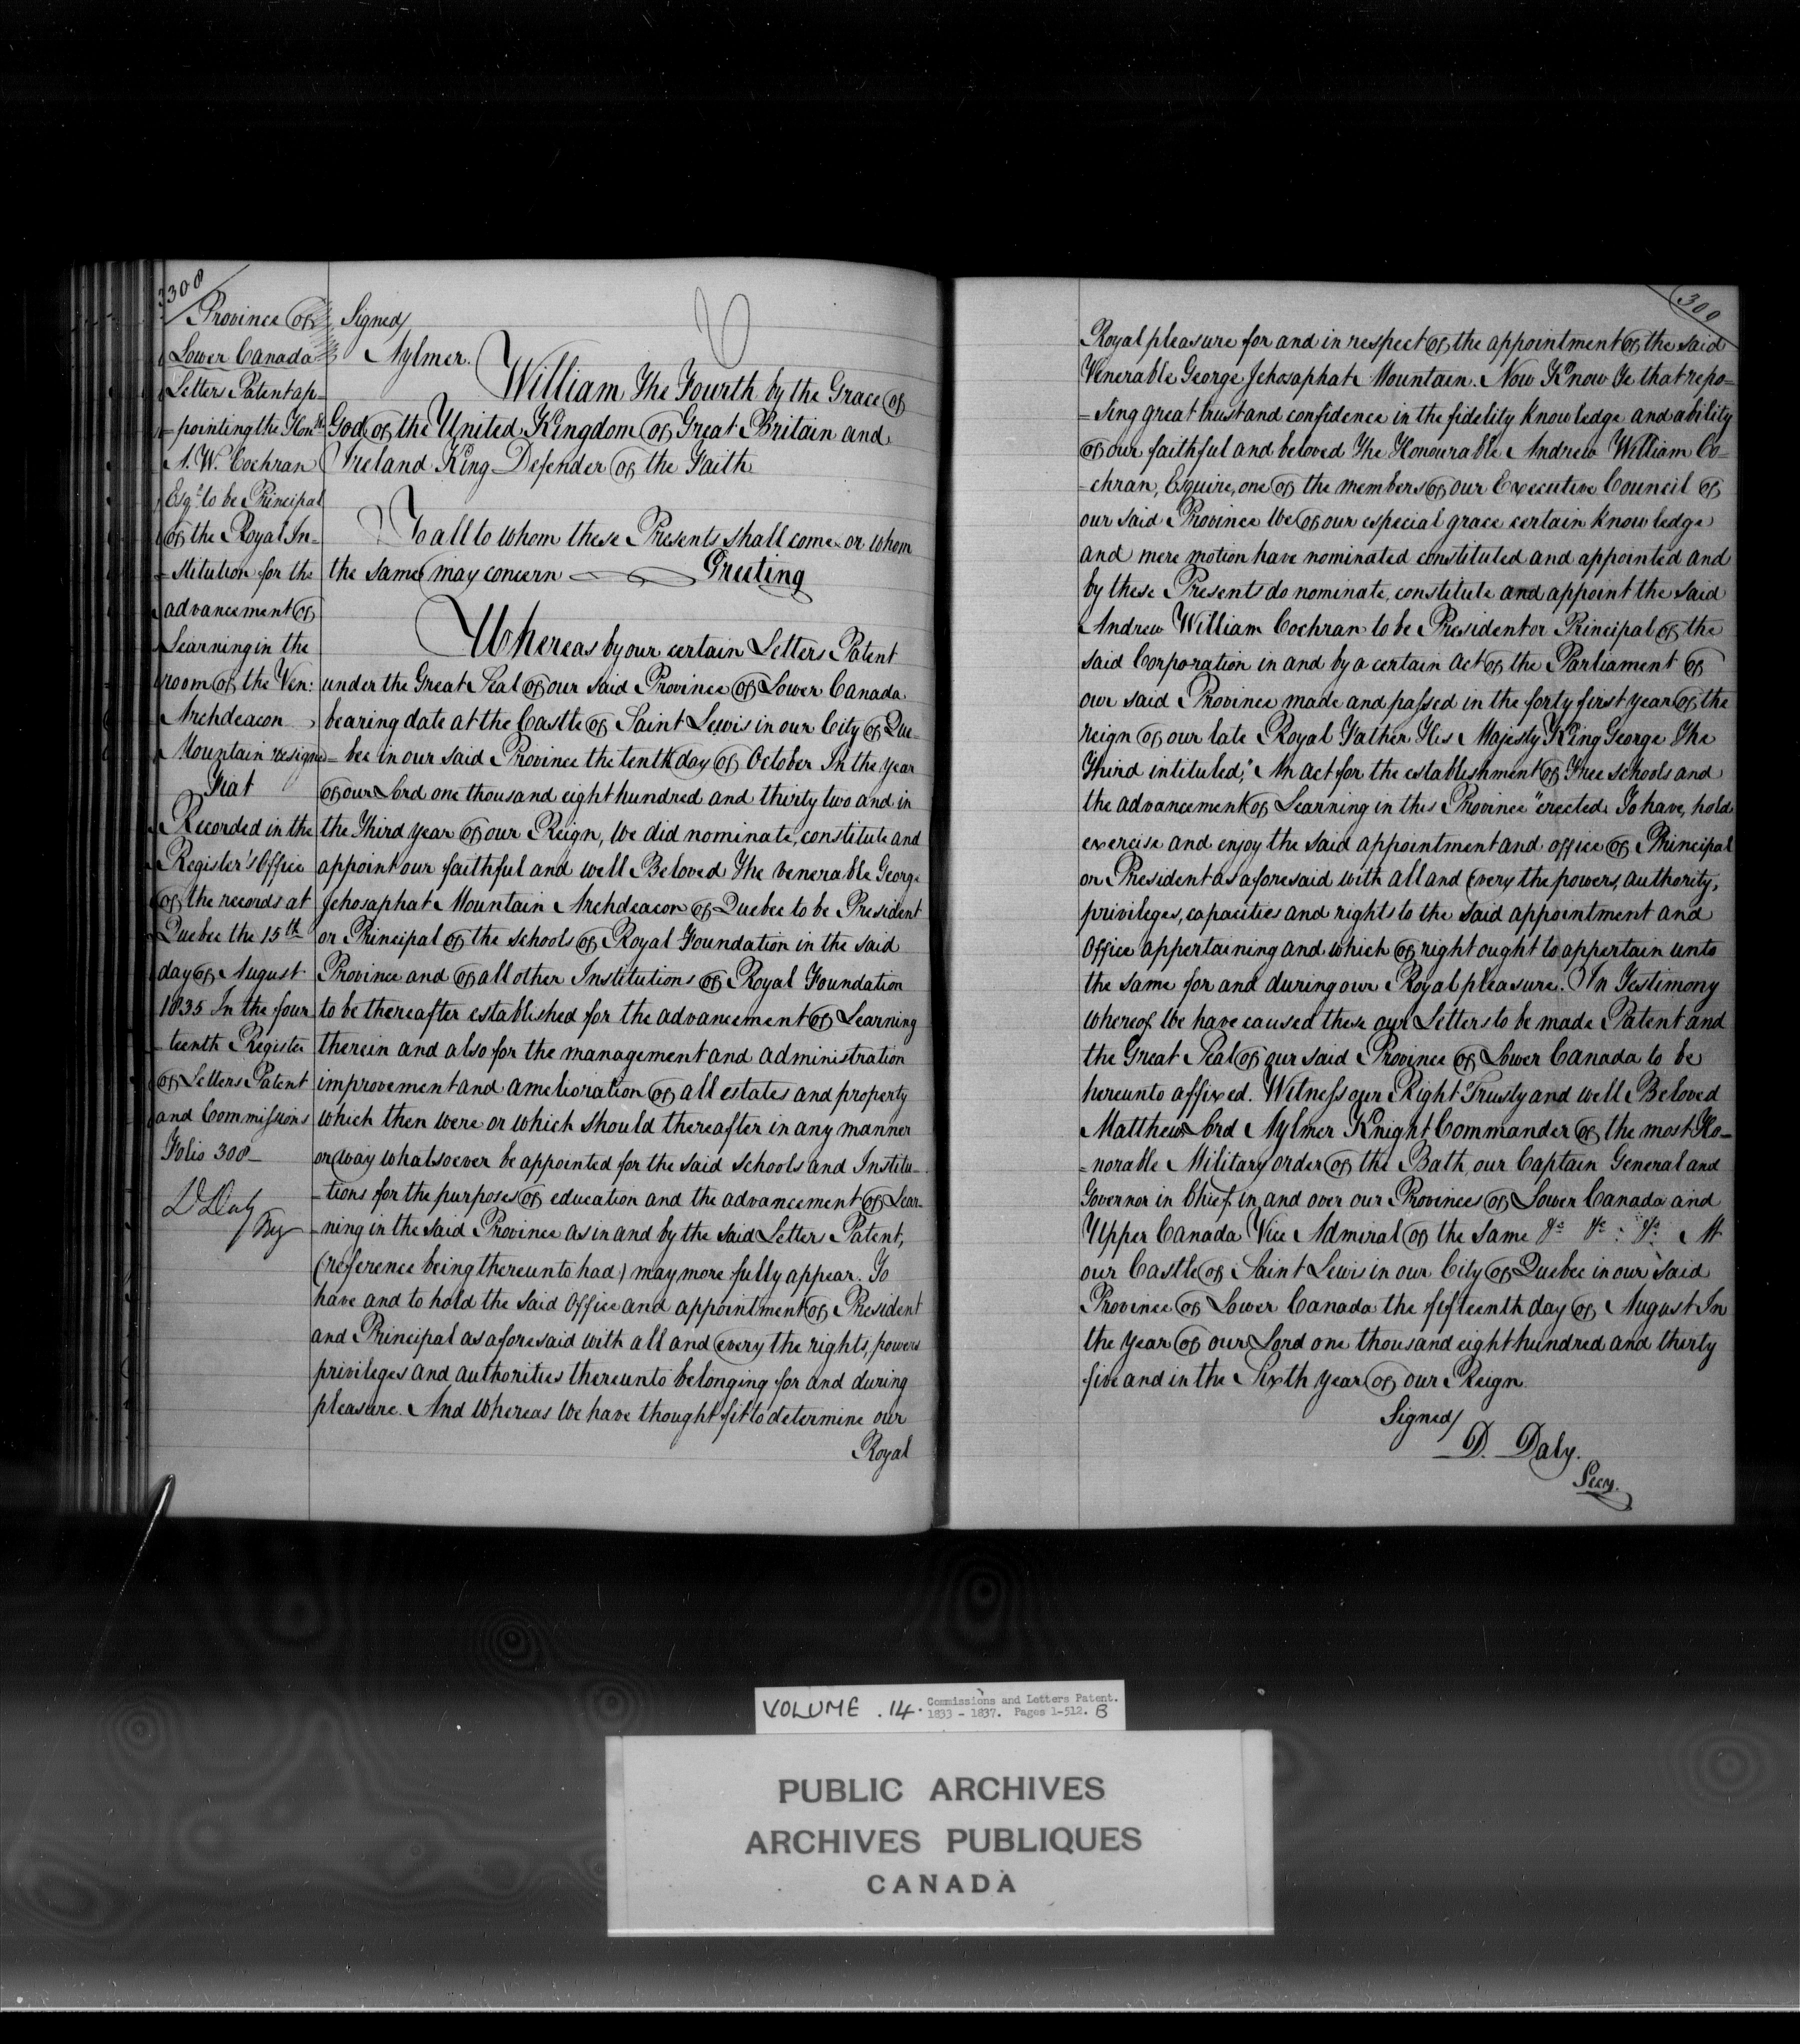 308
Province of
Lower Canada
Letters Patent ap-
=pointing the Honble
A. W. Cochran
Esqr to be Principal
of the Royal In-
=stitution for the
advancement of
Learning in the
room of the Ven:
Archdeacon
Mountain resigned
Fiat
Recorded in the
Register's Office
of the records at
Quebec the 15th
day of August
1835 In the four
=teenth Register
of Letters Patent
and Commissions
Folio 308-
D Daly
Reg
Signed/
Aylmer.
William The Fourth by the Grace of
God of the United Kingdom of Great Britain and
Ireland King Defender of the Faith
To all to whom these Presents shall come or whom
the same may concern Greeting
Whereas by our certain Letters Patent
under the Great Seal of our said Province of Lower Canada
bearing date at the Castle of Saint Lewis in our City of Que-
=bec in our said Province the tenth day of October In the year
of our Lord one thousand eight hundred and thirty two and in
the Third year of our Reign, We did nominate, constitute and
appoint our faithful and well Beloved The Venerable George
Jehosaphat Mountain Archdeacon of Quebec to be President
or Principal of the schools of Royal Foundation in the said
Province and of all other Institutions of Royal Foundation
to be thereafter established for the advancement of Learning
therein and also for the management and administration
improvement and amelioration of all estates and property
which then were or which should thereafter in any manner
or way whatsoever be appointed for the said schools and Institu-
=tions for the purposes of education and the advancement of Lear-
=ning in the said Province as in and by the said Letters Patent,
(reference being thereunto had) may more fully appear. To
have and to hold the said Office and appointment of President
and Principal as aforesaid with all and every the rights, powers
privileges and authorities thereunto belonging for and during
pleasure. And Whereas We have thought fit to determine our
Royal
309
Royal pleasure for and in respect of the appointment of the said
Venerable George Jehosaphat Mountain. Now Know Ye that repo=
=sing great trust and confidence in the fidelity knowledge and ability
of our faithful and beloved The Honourable Andrew William Co-
=chran, Esquire, one of the members of our Executive Council of
our said Province We of our especial grace certain knowledge
and mere motion have nominated constituted and appointed and
by these Presents do nominate, constitute and appoint the said
Andrew William Cochran to be President or Principal of the
said Corporation in and by a certain Act of the Parliament of
our said Province made and passed in the forty first year of the
reign of our late Royal Father His Majesty King George The
Third intituled, "An Act for the establishment of Free schools and
the advancement of Learning in this Province" erected. To have, hold
exercise and enjoy the said appointment and office of Principal
or President as aforesaid with all and every the powers, authority,
privileges, capacities and rights to the said appointment and
Office appertaining and which of right ought to appertain unto
the same for and during our Royal pleasure. In Testimony
Whereof We have caused these our Letters to be made Patent and
the Great Seal of our said Province of Lower Canada to be
hereunto affixed. Witness our Right Trusty and well Beloved
Matthew Lord Aylmer Knight Commander of the most Ho-
=norable Military order of the Bath, our Captain General and
Governor in Chief in and over our Provinces of Lower Canada and
Upper Canada Vice Admiral of the same &c &c &c At
our Castle of Saint Lewis in our City of Quebec in our said
Province of Lower Canada the fifteenth day of August In
the year of our Lord one thousand eight hundred and thirty
five and in the Sixth year of our Reign
Signed/
D. Daly.
Secy.
VOLUME . 14. Commissions and Letters Patent.
1833 - 1837. Pages 1-512. B
PUBLIC ARCHIVES
ARCHIVES PUBLIQUES
CANADA